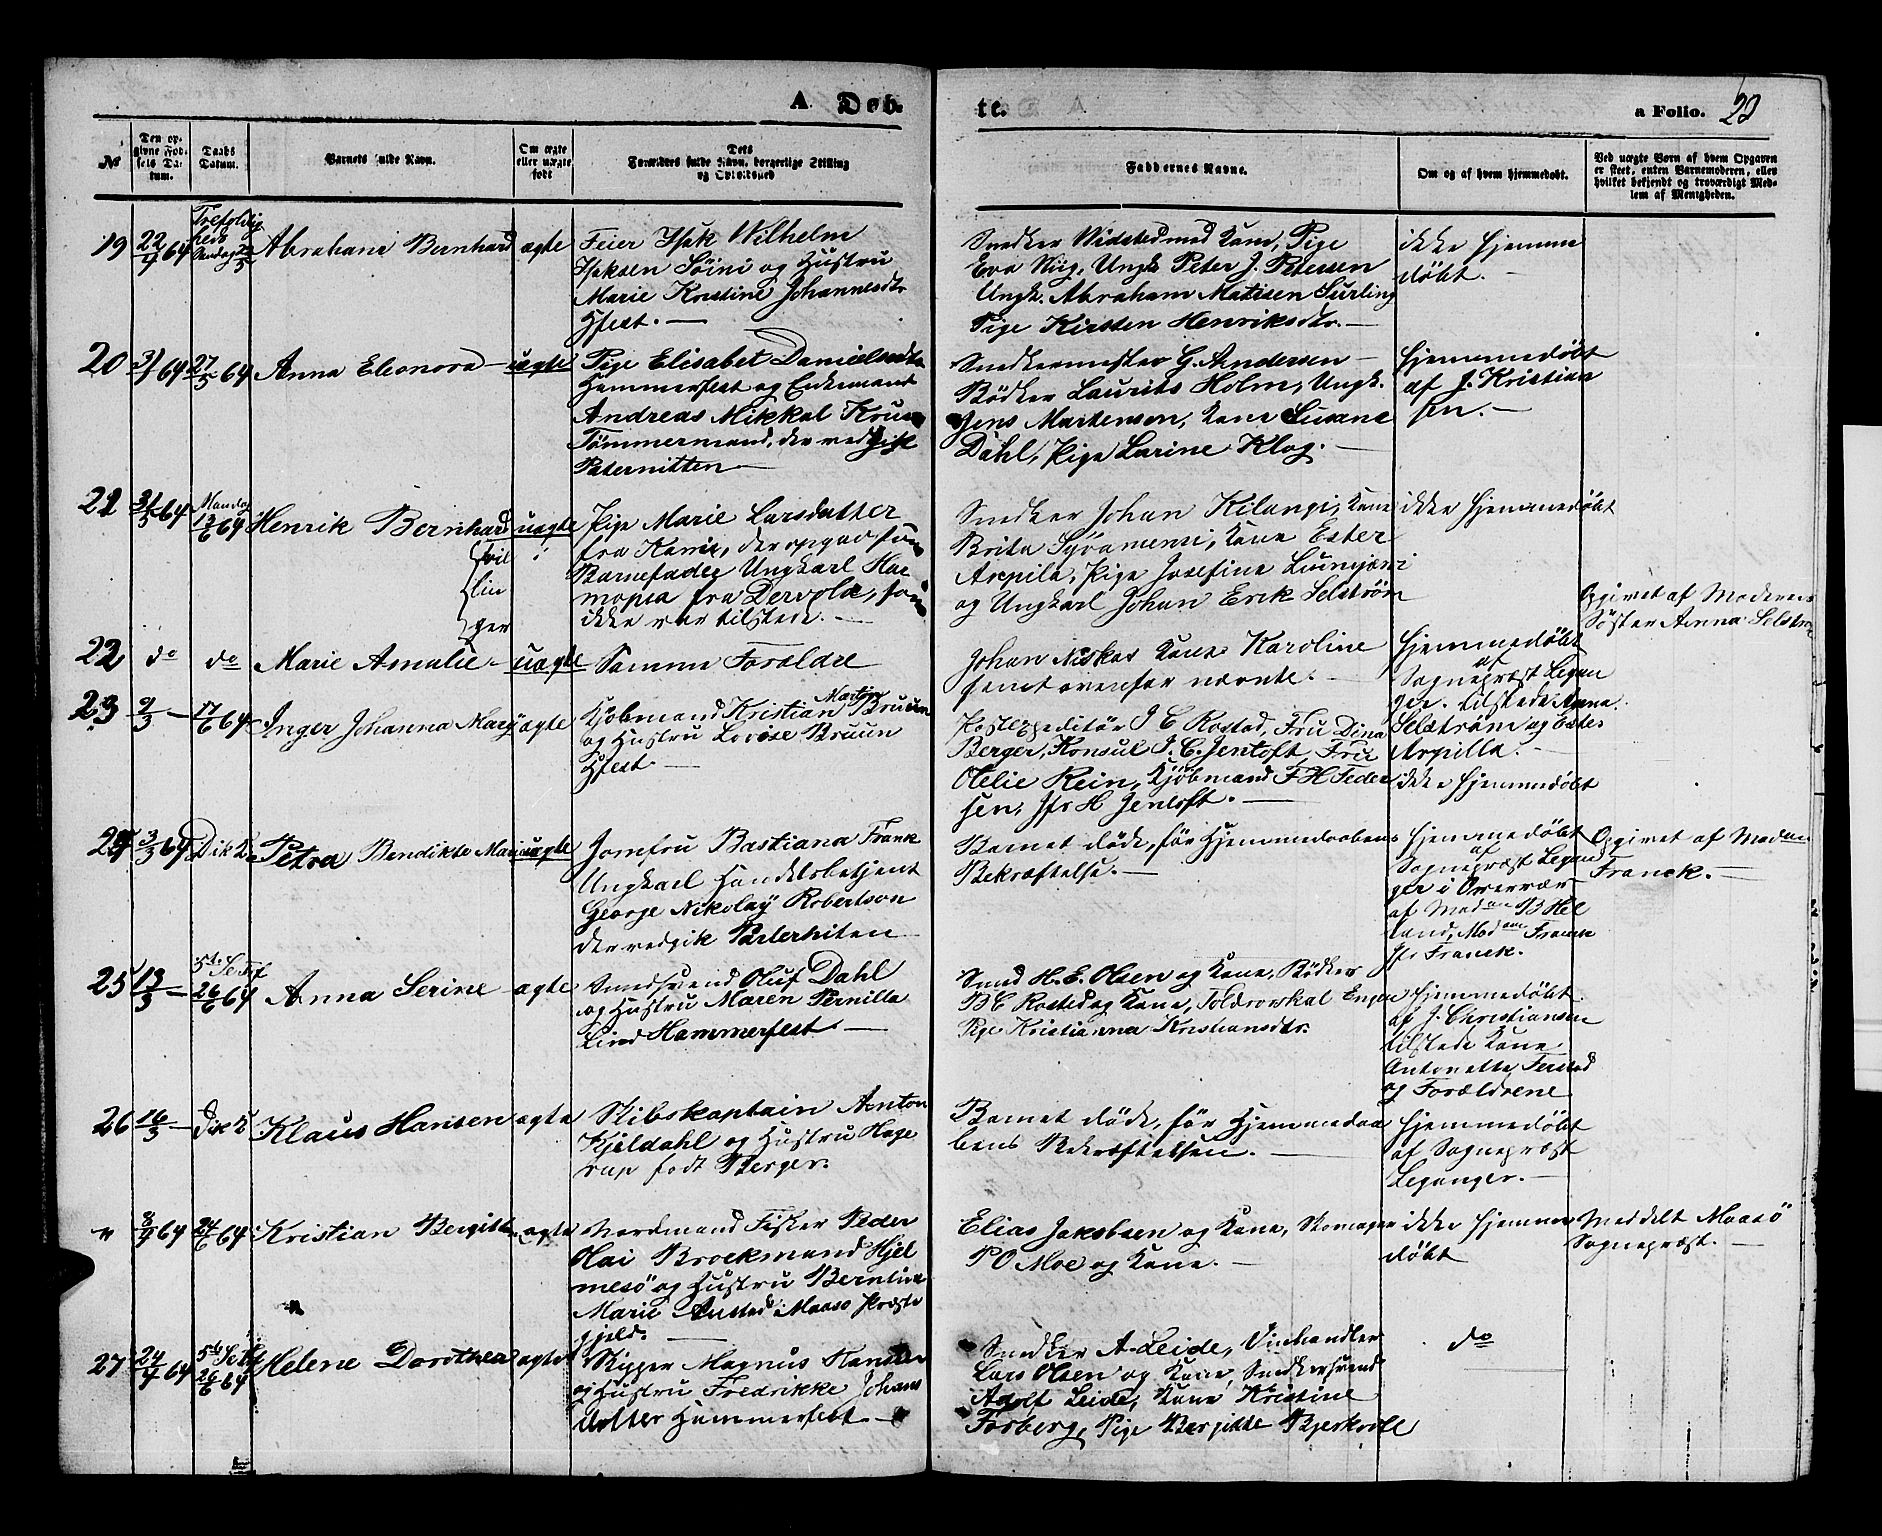 A Døb.
te.
a Folio. 22
№
Den opgivne Fødsels Datum.
Daabs Datum.
Barnets fulde Navn.
Om ægte eller uægte født
Dets Forældres fulde Navn, borgerlige Stilling og Opholdssted
Faddernes Navne.
Om og af hvem hjemmedøbt.
Ved uægte Børn af hvem Opgaven er skeet, enten Barnemoderen, eller hvilket bekjendt og troværdigt Medlem af Menigheden.
19 22/4 64 Trefoldigheds Søndag 22/5 Abraham Bernhard ægte
Feier Isak Wilhelm
Isaksen Söini og Hustru
Marie Kristine Johannesdtr
Hfest.
Snedker Widsted med Kone, Pige
Eva Niig, Ungk. Peter J. Petersen
Ungk. Abraham Matisen Surling
Pige Kirsten Henriksdtr.
ikke hjemme
döbt.
20 64 27/5 64 Anna Eleonora uægte
Pige Elisabet Danielsdtr
Hammerfest og Enkemand
Andreas Mikkal Kruse
Tømmermand, der vedgik
Paternitten
Snedkermester G. Andersen
Bödker Laurits Holm, Ungk.
Jens Mortensen, Kone Susane
Dahl, Pige Larine Klog.
hjemmedöbt
af J. Kristian
sen.
21 31/5 64 Mandag 13/6 64 Henrik Bernhard uægte
tvil
lin
ger
Pige Marie Larsdatter
fra , der opgav som
Barnefader Ungkarl
fra , som
ikke var tilstede.
Snedker Johan Kilangi, Kone
Brita , Kone Ester
Arpila, Pige Josefine
og Ungkarl Johan Erik Selström
ikke hjemmedöbt
Opgivet af Moderens
Söster Anna Selström
22 do do Marie Amalie uægte
Samme Forældre
Johan Niskas Kone Karoline
samt ovenfor nævnte.
hjemmedöbt
af
Sognepræst Legan
ger. tilstede Anna
Selström og Ester
Arpilla.
23 9/3 17/6 64 Inger Johanna Mary ægte
Kjöbmand Kristian Martin Bruun
og Hustru Lovise Bruun
Hfest.
Postexpeditör J C Rostad, Fru Dina
Berger, Konsul J. C. Jentoft, Fru
Olelie Rein, Kjöbmand F H Feder
sen, Jfr H Jentoft.
ikke hjemmedöbt
24 3/3 64 Petra Bendikte Marie uægte
Jomfru Bastiana Frank
Ungkarl Handelsbetjent
George Nikolay Robertson
der vedgik Paterniten
Barnet döde, för Hjemmedaabens
Bekræftelse.
hjemmedöbt
af
Sognepræst Legan
ger i Overvær
af Madam B Hel
land, Madam Franck
Jfr Franck.
Opgivet af Madam
Franck.
25 13/3 26/6 64 Anna Serine ægte
Smedsvend Oluf Dahl
og Hustru Maren Pernilla
Lind Hammerfest.
Smed H. E. Olsen og Kone, Bödker
B C Rosted og Kone,
Pige Kristianna Kristiansdtr.
hjemmedöbt
af J. Christiansen
tilstede Kone
Antonette
og Forældrene
26 16/3 Klaus Hansen ægte
Skibskaptain Anton
Kjeldahl og Hustru Hage
rup født Berger.
Barnet döde, för Hjemmedaa
bens Bekræftelsen.
hjemmedöbt
af Sognepræst
Leganger.
8/4 64 24/6 64 Kristian Bergitte ægte
Nordmand Fisker Peder
Olai Brocksmand Hjel
mesö og Hustru Berntine
Marie Maasö Præste
gjeld.
Elias Jakobsen og Kone, Skomager
P O Moe og Kone.
ikke hjemme
döbt
Meddelt Maasö
Sognepræst.
27 24/4 64 26/6 64 Helene Dorothea ægte
Skipper Magnus Hansen
og Hustru Fredrikke Johans
datter Hammerfest
Snedker A Leide, Vinhandler
Lars Olsen og Kone, Snedkersvend
Adolf Leide, Kone Kristine
Forberg, Pige Bergitte Bjerkvolle
do